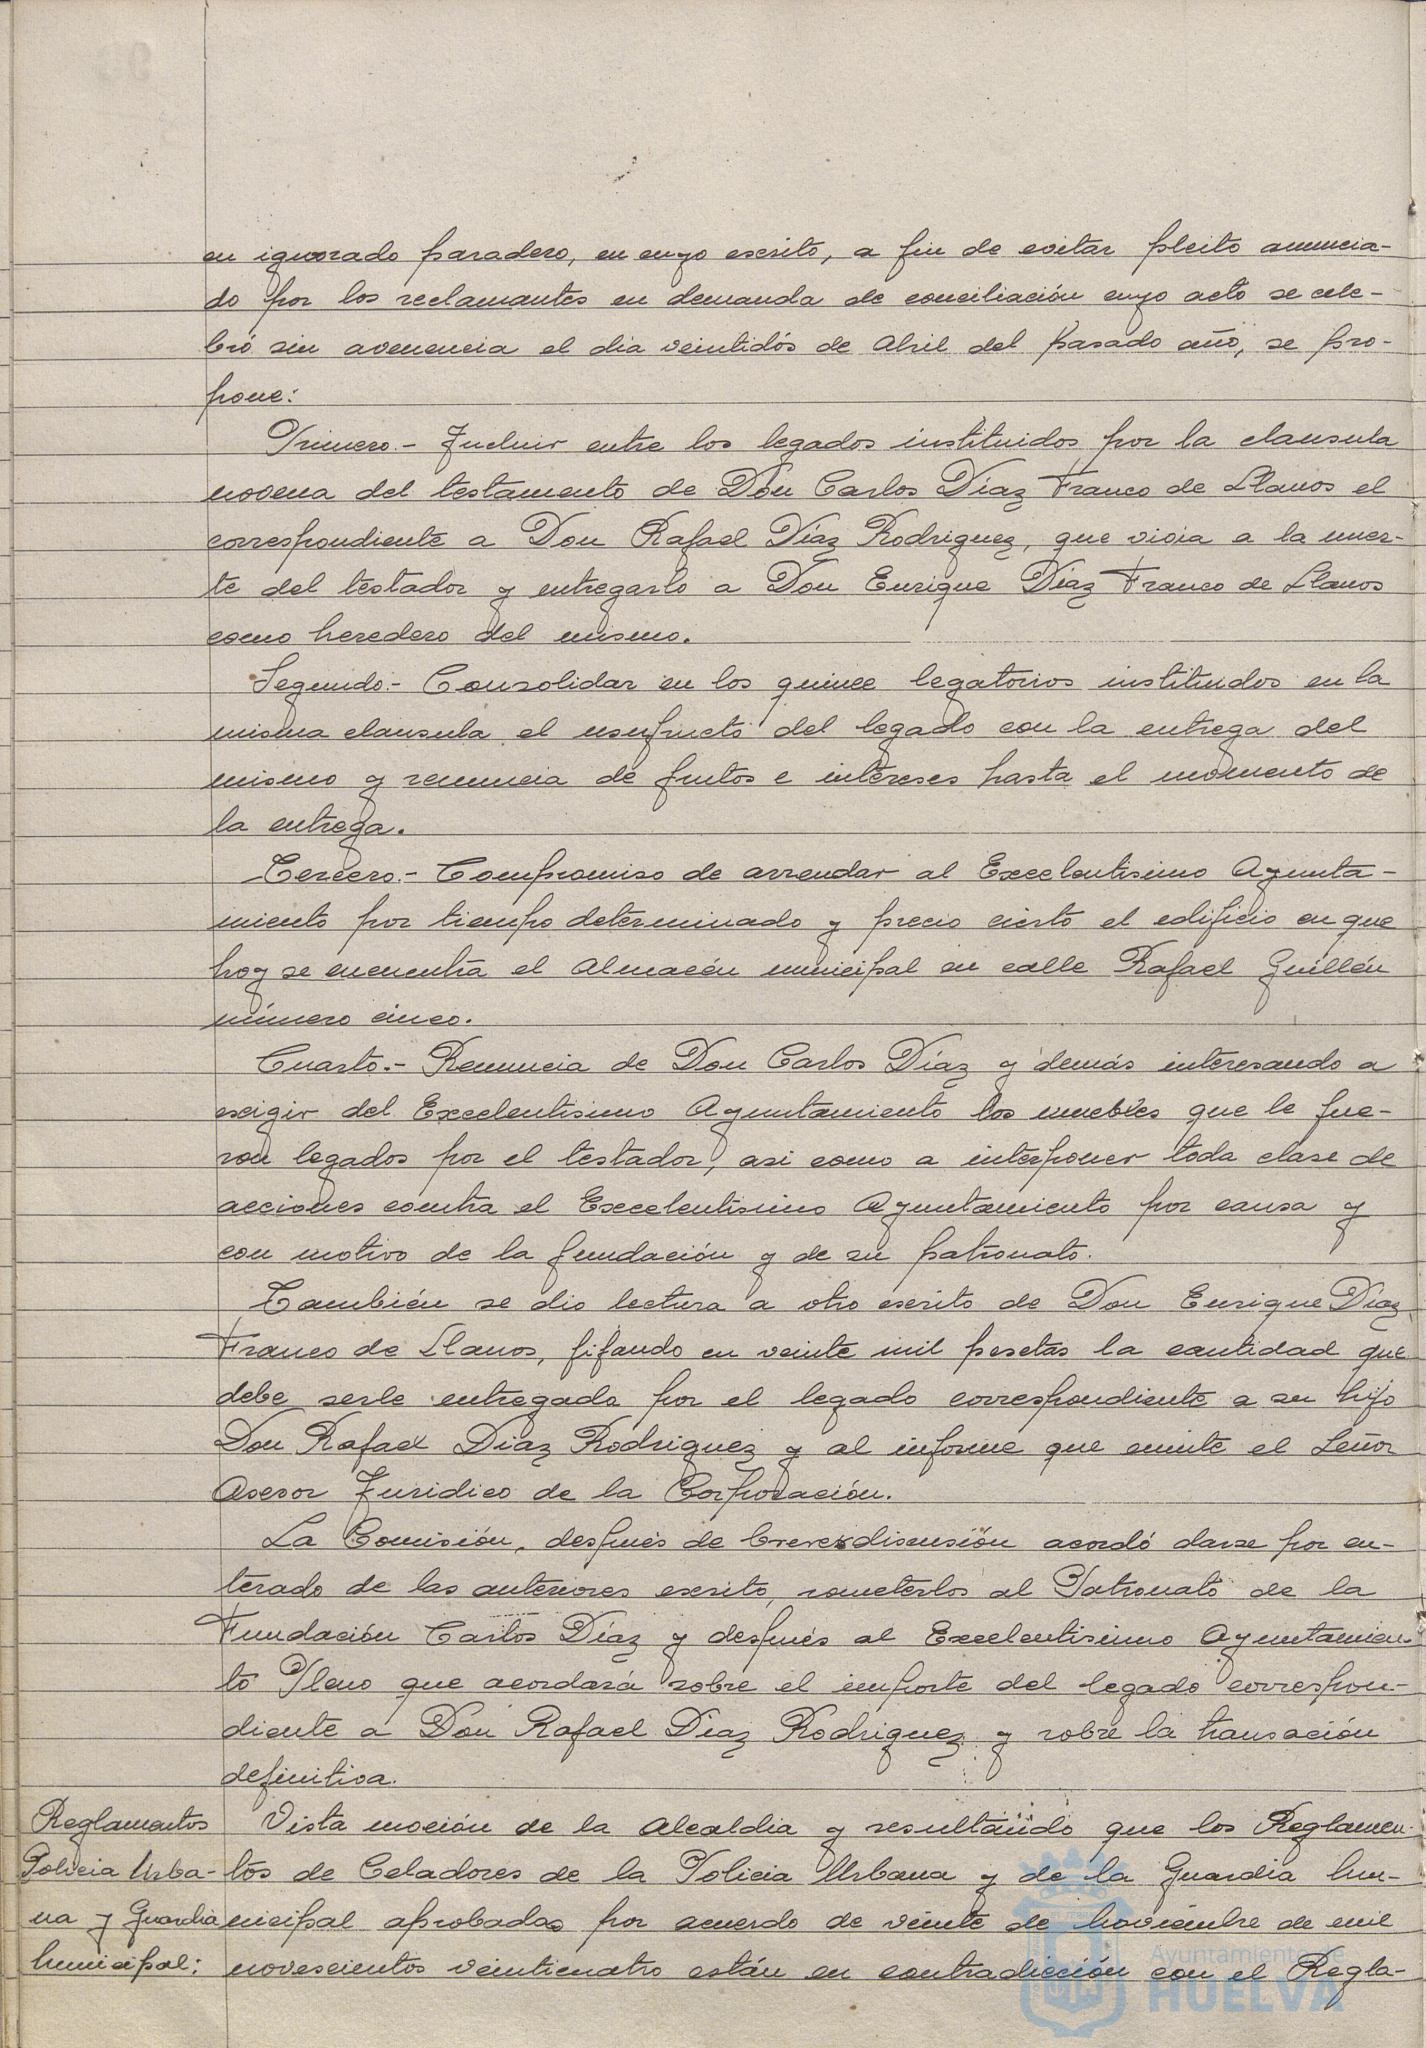 en ignorado paradero, en cuyo escrito, a fin de evitar pleito anuncia-
do por los reclamantes en demanda de conciliación cuyo acto se cele-
bró sin avenencia el dia veintidós de Abril del pasado año, se pro-
pone:
Primero.- Incluir entre los legados instituidos por la clausula
novena del testamento de Don Carlos Díaz Franco de Llanos el
correspondiente a Don Rafael Díaz Rodriguez, que vivia a la muer-
te del testador y entregarlo a Don Enrique Díaz Franco de Llanos
como heredero del mismo.
Segundo.- Consolidar en los quince legatorios instituidos en la
misma clausula el usufructo del legado con la entrega del
mismo y renuncia de frutos e intereses hasta el momento de
la entrega.
Tercero.- Compromiso de arrendar al Excelentisimo Ayunta-
miento por tiempo determinado y precio cierto el edificio en que
hoy se encuentra el Almacén municipal en calle Rafael Guillén
número cinco.
Cuarto.- Renuncia de Don Carlos Díaz y demás interesando a
exigir del Excelentisimo Ayuntamiento los muebles que le fue-
ron legados por el testador, asi como a interponer toda clase de
acciones contra el Excelentisimo Ayuntamiento por causa y
con motivo de la fundación y de su patronato.
También se dio lectura a otro escrito de Don Enrique Díaz
Franco de Llanos, fijando en veinte mil pesetas la cantidad que
debe serle entregada por el legado correspondiente a su hijo
Don Rafael Diaz Rodriguez y al informe que emite el Señor
Asesor Juridico de la Corporación.
La Comisión, después de breve discusión acordó darse por en-
terado de las anteriores escrito, someterlos al Patronato de la
Fundación Carlos Díaz y después al Excelentisimo Ayuntamien-
to Pleno que acordará sobre el importe del legado correspon-
diente a Don Rafael Díaz Rodriguez y sobre la transación
definitiva.
Reglamentos
Policia Urba-
na y Guardia
Municipal:
Vista moción de la Alcaldia y resultando que los Reglamen-
tos de Celadores de la Policia Urbana y de la Guardia Mu-
nicipal aprobadas por acuerdo de veinte de Noviembre de mil
novescientos veinticuatro están en contradicción con el Regla-
Ayuntamiento de
HUELVA